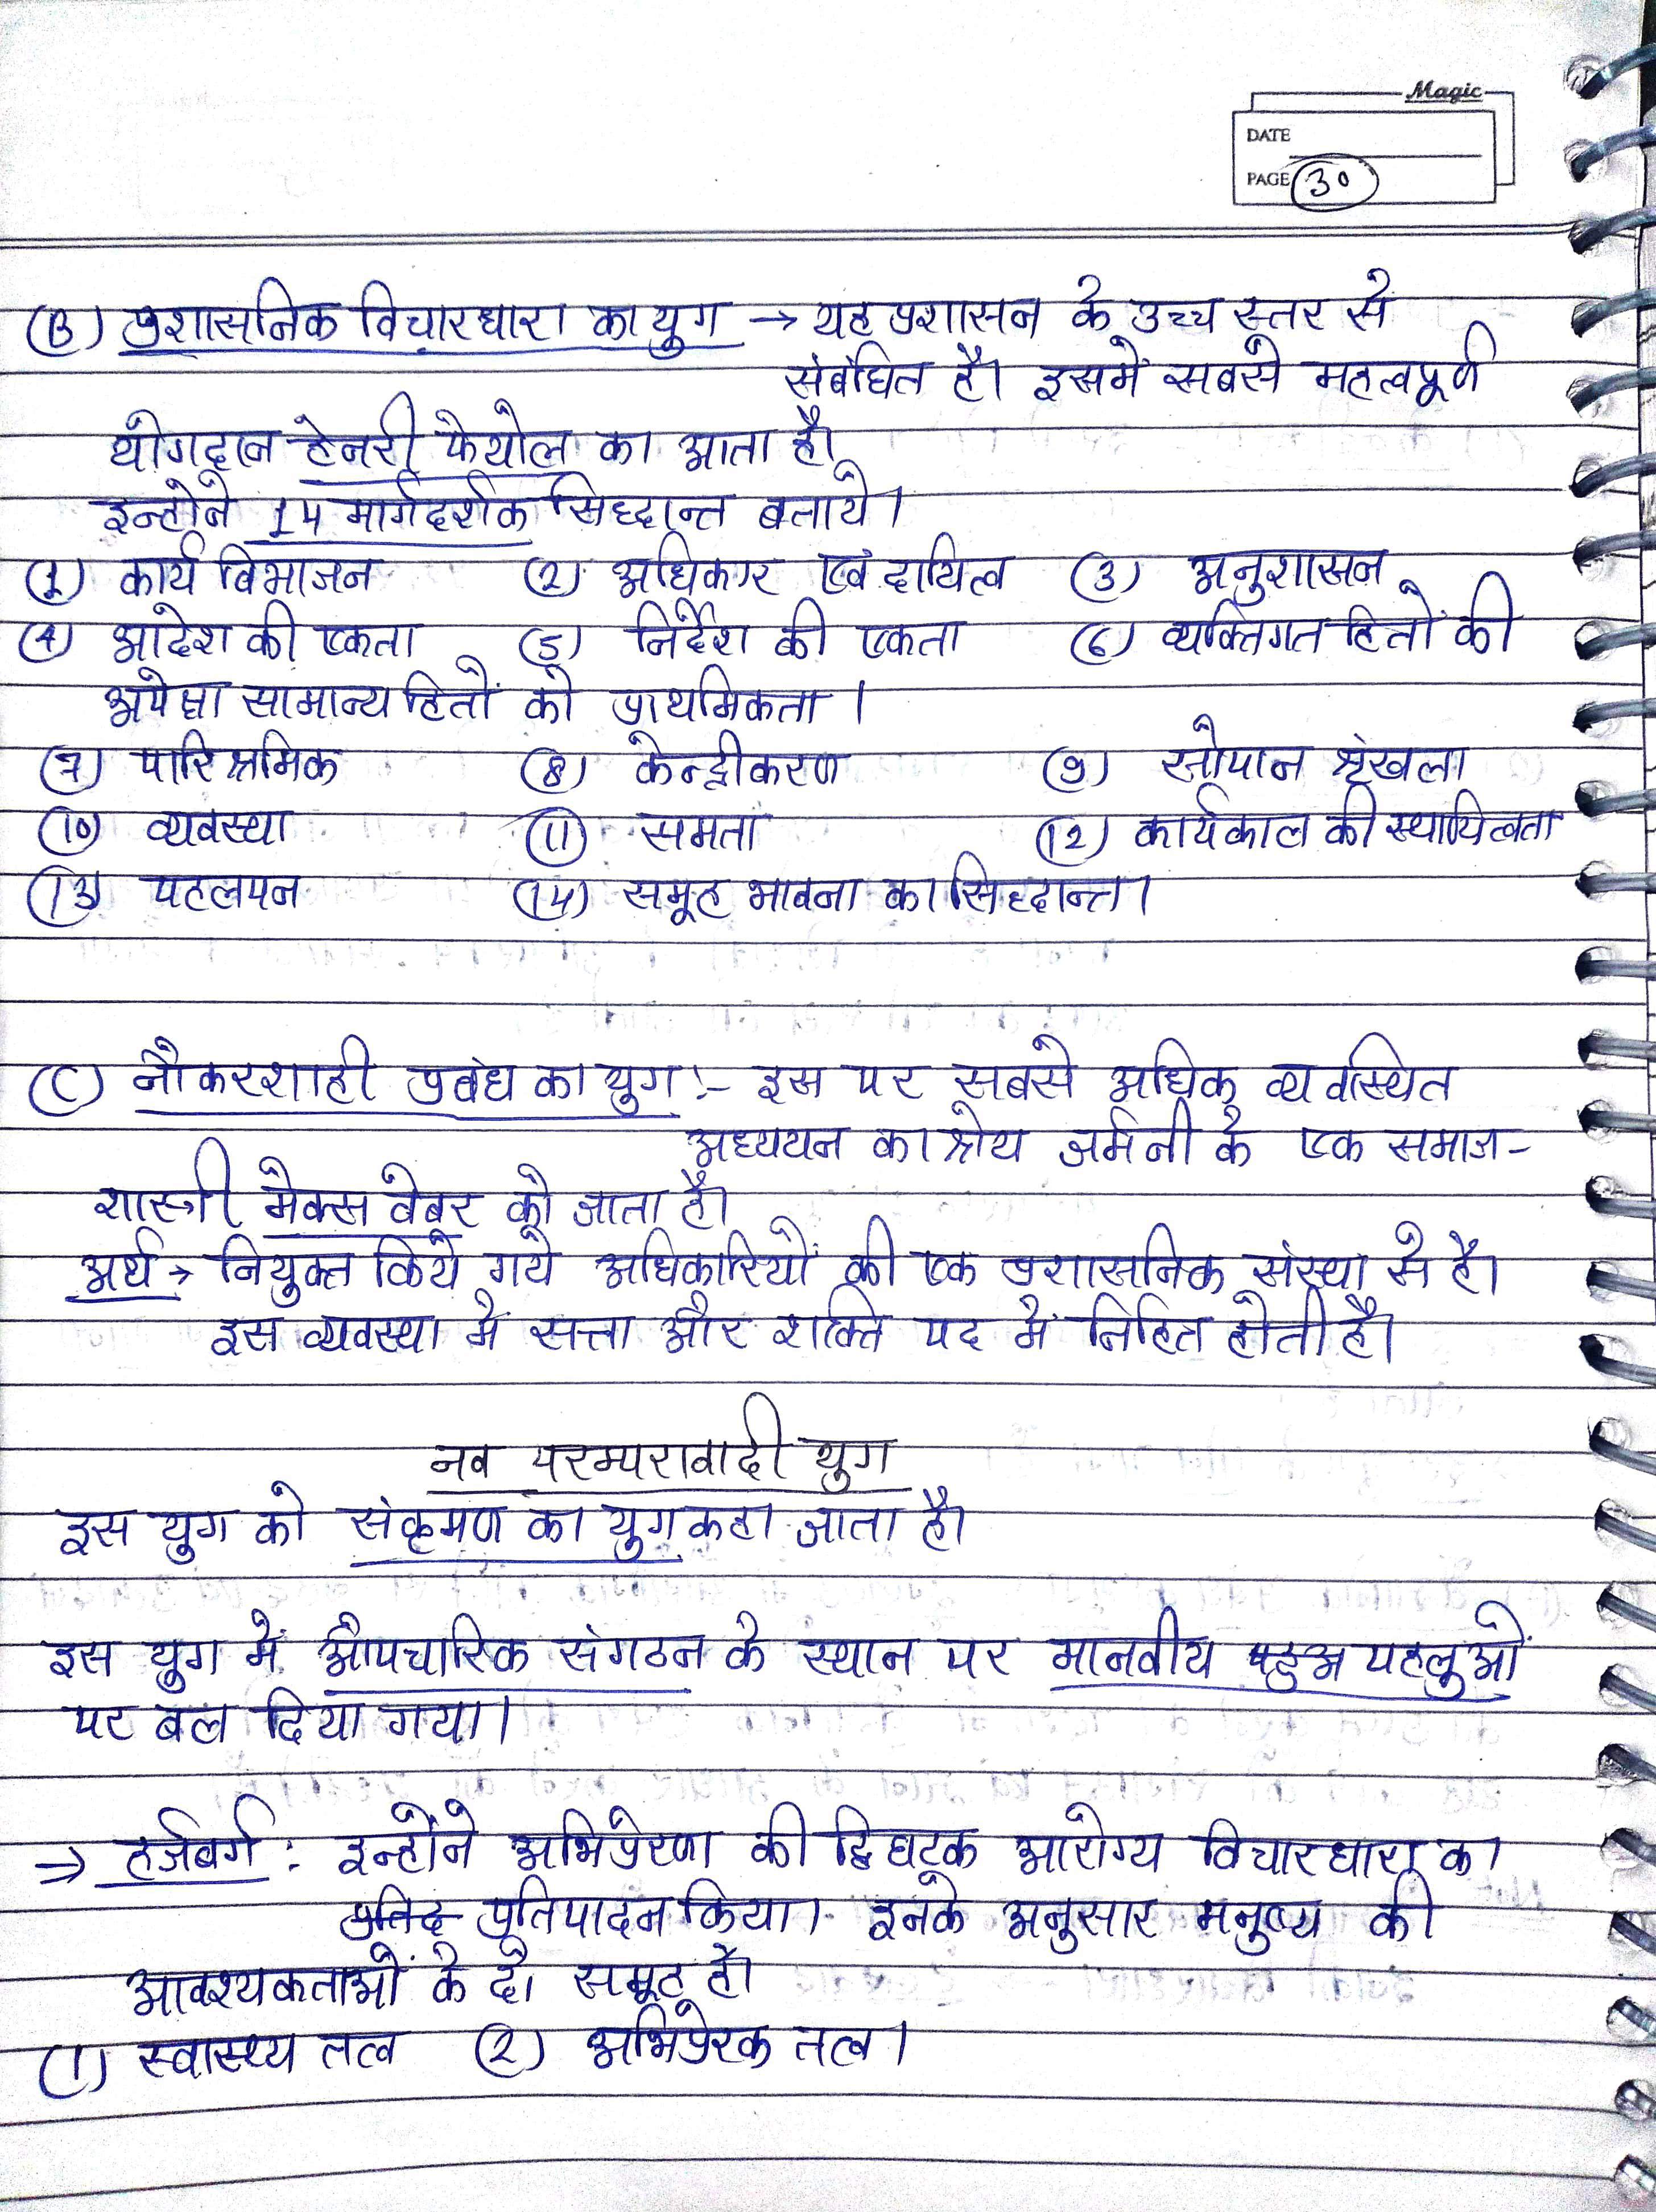 Magic
DATE
PAGE 30
(B) प्रशासनिक विचारधारा का युग → यह प्रशासन के उच्च स्तर से
संबंधित है। इसमें सबसे महत्वपूर्ण
योगदान हेनरी फेयोल का आता है।
इन्होने 14 मार्गदर्शक सिद्धान्त बताये।
(1) कार्य विभाजन (2) अधिकार एवं दायित्व (3) अनुशासन
(4) आदेश की एकता (5) निर्देश की एकता (6) व्यक्तिगत हितों की
अपेक्षा सामान्य हितों को प्राथमिकता।
(7) पारिश्रमिक (8) केन्द्रीकरण (9) सोपान श्रृंखला
(10) व्यवस्था (11) समता (12) कार्यकाल की स्थायित्वता
(13) पहलपन (14) समूह भावना का सिद्धान्त।
(C) नौकरशाही प्रबंध का युग :- इस पर सबसे अधिक व्यवस्थित
अध्ययन का श्रेय जर्मनी के एक समाज-
शास्त्री मैक्स वेबर को जाता है।
अर्थ → नियुक्त किये गये अधिकारियों की एक प्रशासनिक संस्था से है।
इस व्यवस्था में सत्ता और शक्ति पद में निहित होती है।
नव परम्परावादी युग
इस युग को संक्रमण का युग कहा जाता है।
इस युग में औपचारिक संगठन के स्थान पर मानवीय पहलुओं
पर बल दिया गया।
→ हर्जबर्ग : इन्होंने अभिप्रेरण की द्विघटक आरोग्य विचारधारा का
प्रतिपादन किया। इनके अनुसार मनुष्य की
आवश्यकताओं के दो समूह है।
(1) स्वास्थ्य तत्व (2) अभिप्रेरक तत्व।